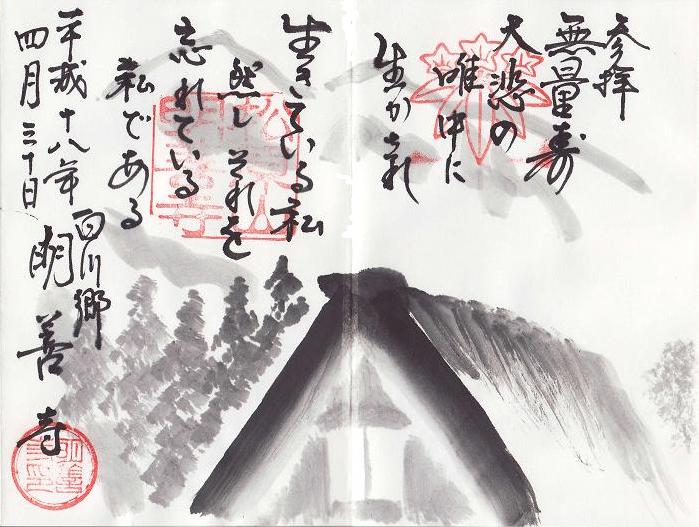 参拝
無量寿
大悲の
唯中に
生かされ
生きている私
然しそれを
忘れている
私である
平成十八年
四月三十日
白川郷
明善寺